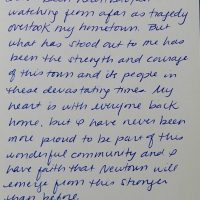 watching from afar as tragedy
overtook my hometown. But
what has stood out to me has
been the strength and courage
of this town and its people in
these devastating times. My
heart is with everyone back
home, but I have never been
more proud to be part of this
wonderful community and I
have faith that Newtown will
emerge from this stronger
than before.